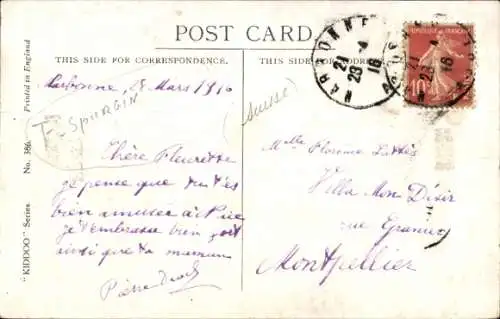 POST CARD
THIS SIDE FOR CORRESPONDENCE.
THIS SIDE FOR ADDRESS
Printed in England
No. 386.
"KIDDOO" Series
NARBONNE
21
23
16
10
Narbonne, 28 Mars 1916
SPURGIN
(Suisse)
Chère Fleurette
je pense que tu t'es
bien amusée à
je t'embrasse bien fort
ainsi que ta maman
Pierre
Mlle Florence
Villa Mon Désir
rue
Montpellier